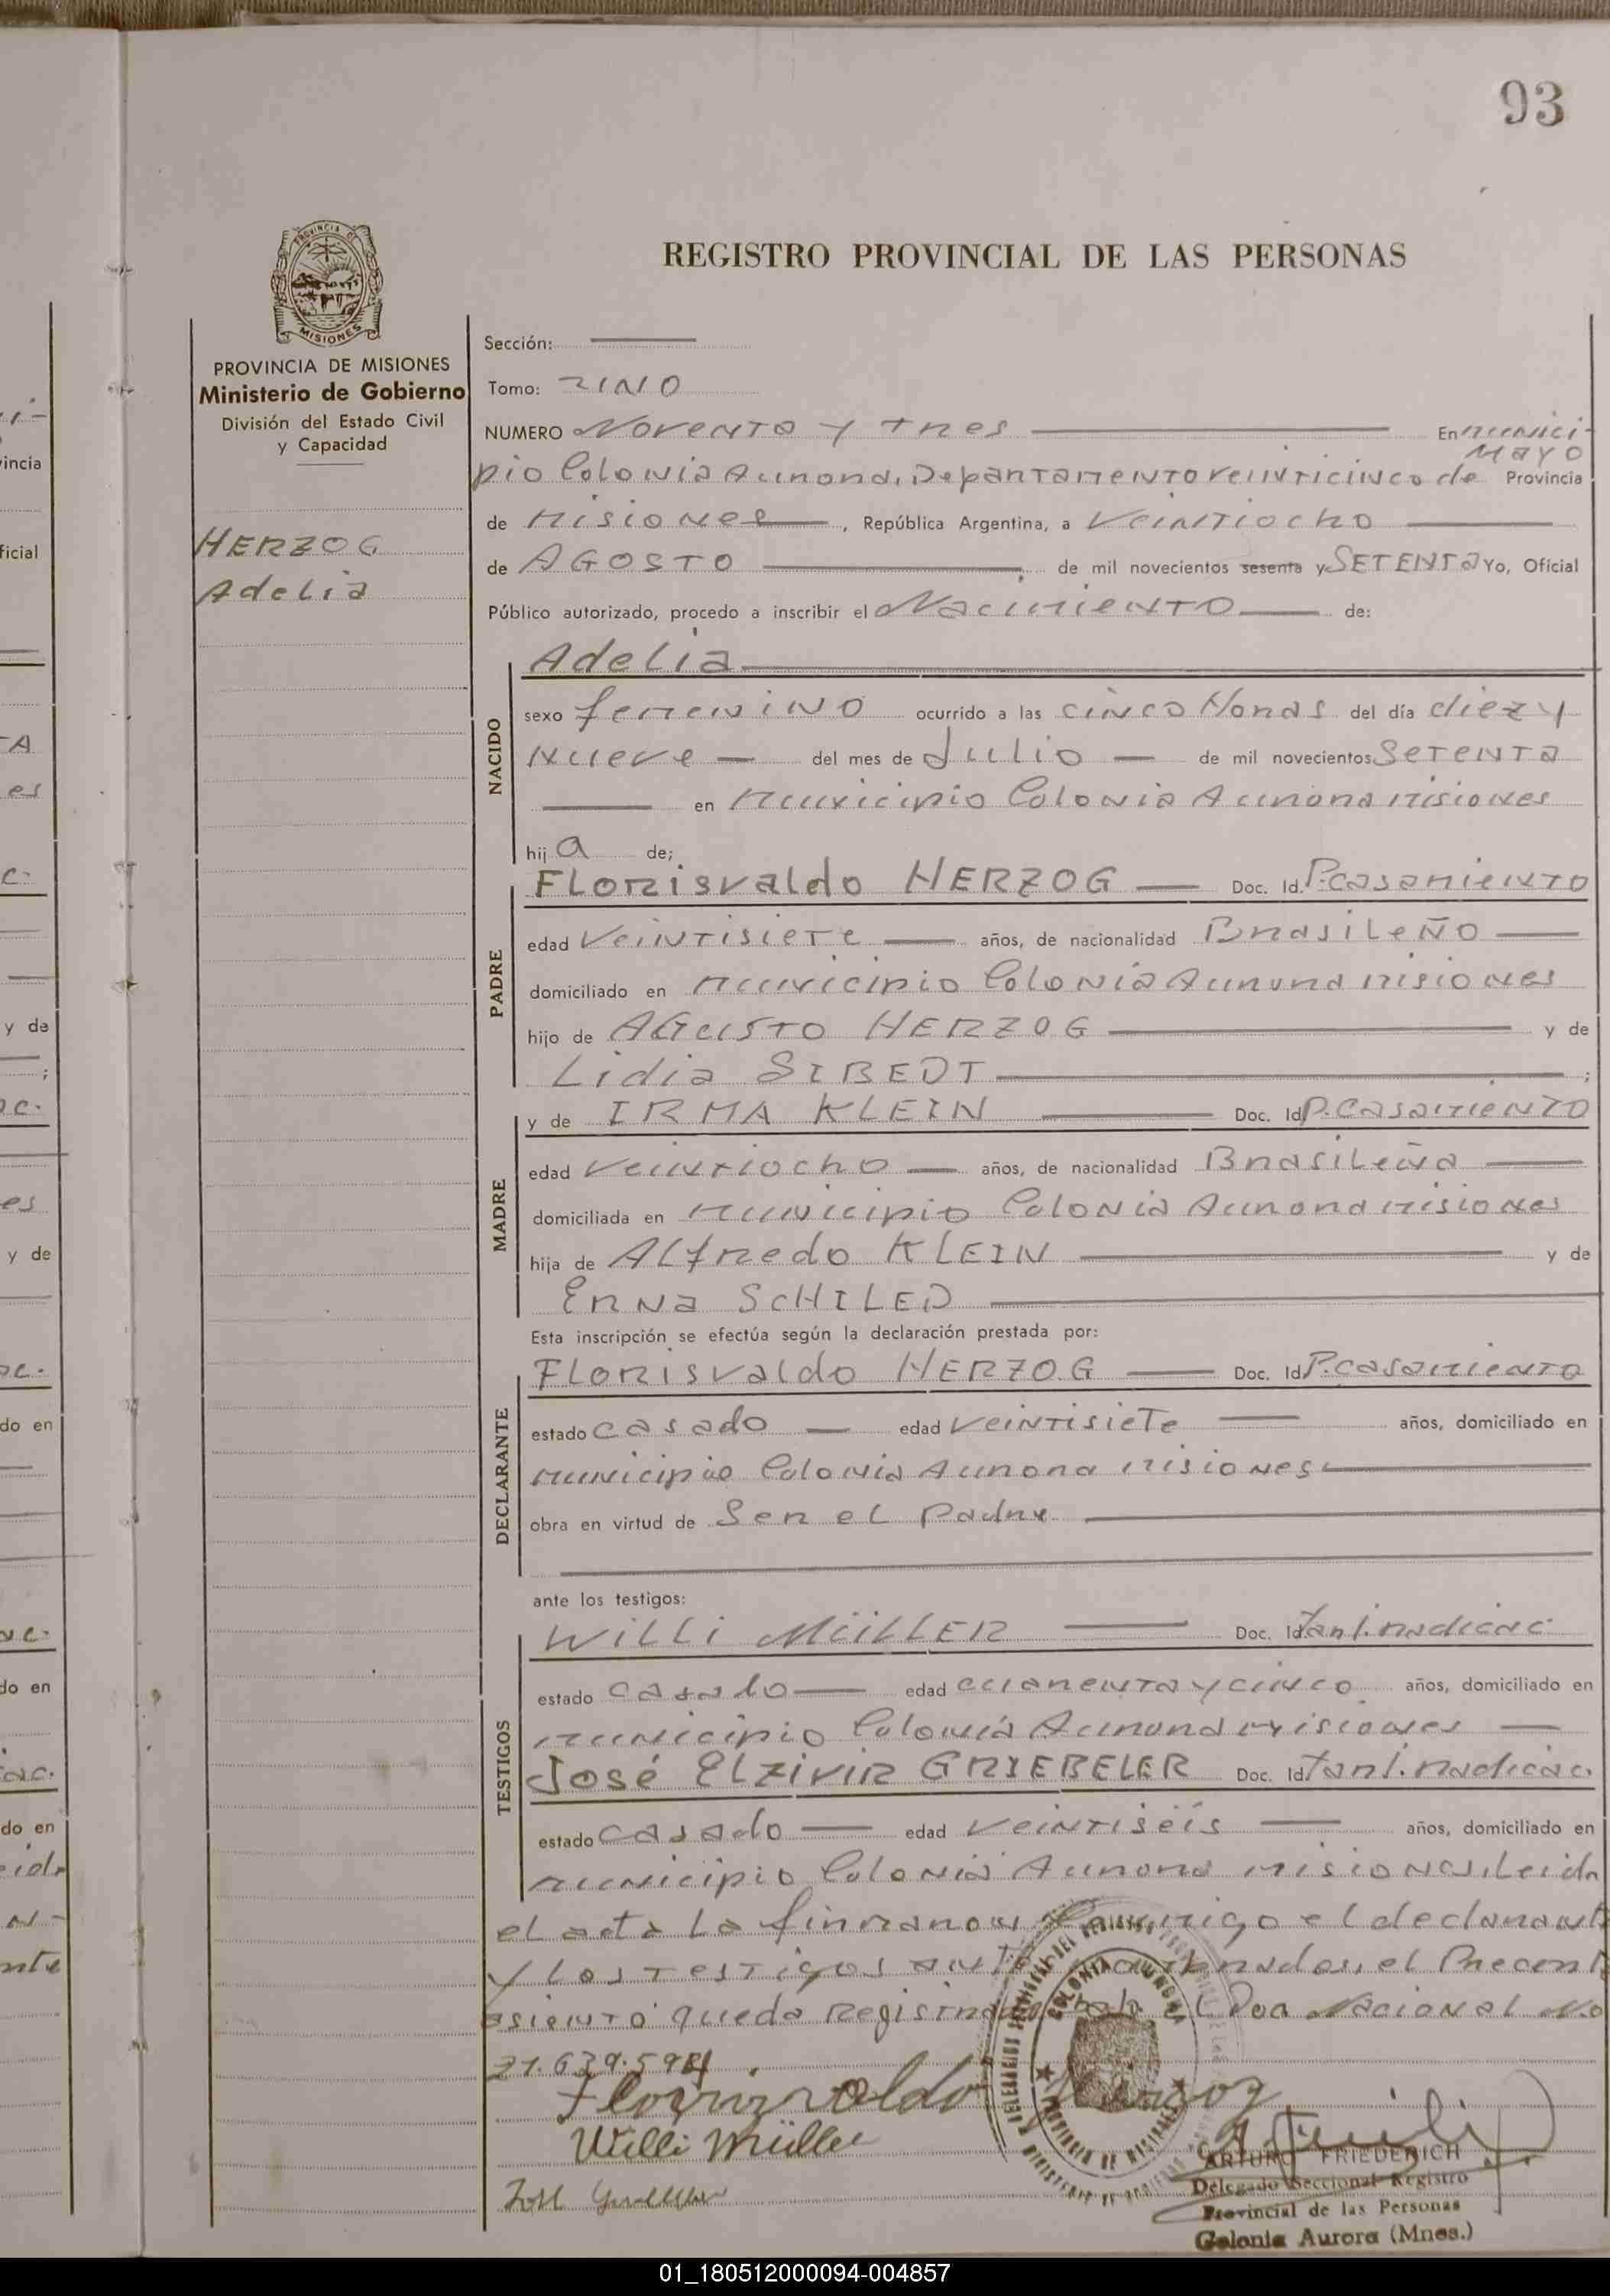 93
REGISTRO PROVINCIAL DE LAS PERSONAS
PROVINCIA DE MISIONES
Ministerio de Gobierno
División del Estado Civil
y Capacidad
HERZOG
Adelia
Sección:
Tomo: UNO
NUMERO Noventa y tres En munici-
pio Colonia Aurora, Departamento veinticinco de MAYO Provincia
de Misiones, República Argentina, a Veintiocho
de AGOSTO de mil novecientos sesenta y SETENTA Yo, Oficial
Público autorizado, procedo a inscribir el Nacimiento de:
NACIDO
Adelia
sexo femenino ocurrido a las cinco Horas del día diez y
Nueve del mes de Julio de mil novecientos Setenta
en municipio Colonia Aurora misiones
hij a de;
PADRE
Florisvaldo HERZOG Doc. Id. P.casamiento
edad Veintisiete años, de nacionalidad Brasileño
domiciliado en municipio Colonia Aurora misiones
hijo de AGusto HERZOG y de
Lidia SIBEDT ;
MADRE
y de IRMA KLEIN Doc. Id P.casamiento
edad Veintiocho años, de nacionalidad Brasileña
domiciliada en municipio Colonia Aurora misiones
hija de Alfredo KLEIN y de
Erna SCHILED
Esta inscripción se efectúa según la declaración prestada por:
DECLARANTE
Florisvaldo HERZOG Doc. Id P.casamiento
estado casado edad veintisiete años, domiciliado en
municipio Colonia Aurora misiones
obra en virtud de Ser el padre
ante los testigos:
TESTIGOS
Willi MüLLER Doc. Id
estado casado edad cuarenta y cinco años, domiciliado en
municipio Colonia Aurora misiones
José Elzivir GRIEBELER Doc. Id
estado casado edad veintiseis años, domiciliado en
municipio Colonia Aurora misiones. Leida
el acta la firmaron conmigo el declarante
y los testigos el Precente
asiento queda registrado bajo el Doc Nacional No
21.639.594
Willi Müller
ARTURO FRIEDERICH
Delegado Seccional Registro
Provincial de las Personas
Colonia Aurora (Mnes.)
01_180512000094-004857